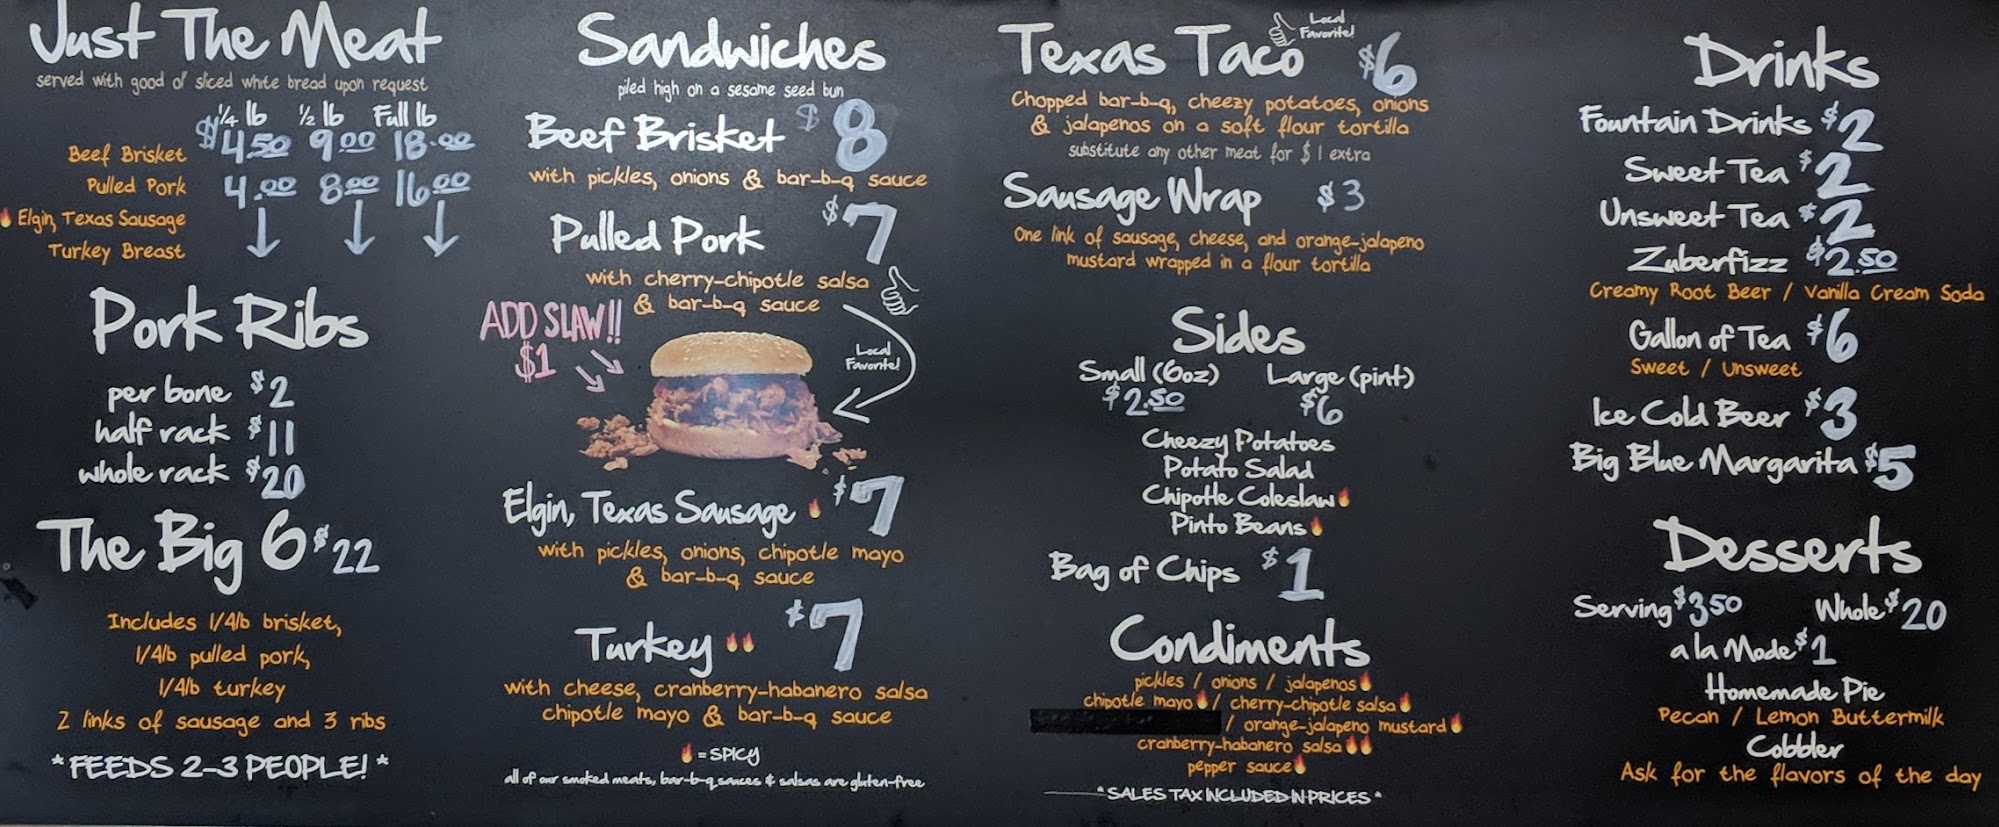 Just The Meat
served with good ol' sliced white bread upon request
1/4 lb 1/2 lb Full lb
Beef Brisket $4.50 9.00 18.00
Pulled Pork 4.00 8.00 16.00
Elgin, Texas Sausage
Turkey Breast
Pork Ribs
per bone $2
half rack $11
whole rack $20
The Big 6 $22
Includes 1/4lb brisket,
1/4lb pulled pork,
1/4lb turkey
2 links of sausage and 3 ribs
*FEEDS 2-3 PEOPLE! *
Sandwiches
piled high on a sesame seed bun
Beef Brisket $8
with pickles, onions & bar-b-q sauce
Pulled Pork $7
with cherry-chipotle salsa
& bar-b-q sauce
ADD SLAW!!
$1
Local
Favorite!
Elgin, Texas Sausage $7
with pickles, onions, chipotle mayo
& bar-b-q sauce
Turkey $7
with cheese, cranberry-habanero salsa
chipotle mayo & bar-b-q sauce
= SPICY
all of our smoked meats, bar-b-q sauces & salsas are gluten-free
Local
Favorite!
Texas Taco $6
Chopped bar-b-q, cheezy potatoes, onions
& jalapenos on a soft flour tortilla
substitute any other meat for $1 extra
Sausage Wrap $3
One link of sausage, cheese, and orange-jalapeno
mustard wrapped in a flour tortilla
Sides
Small (6oz) Large (pint)
$2.50 $6
Cheezy Potatoes
Potato Salad
Chipotle Coleslaw
Pinto Beans
Bag of Chips $1
Condiments
pickles / onions / jalapenos
chipotle mayo / cherry-chipotle salsa
/ orange-jalapeno mustard
cranberry-habanero salsa
pepper sauce
*SALES TAX INCLUDED IN PRICES*
Drinks
Fountain Drinks $2
Sweet Tea $2
Unsweet Tea $2
Zuberfizz $2.50
Creamy Root Beer / Vanilla Cream Soda
Gallon of Tea $6
Sweet / Unsweet
Ice Cold Beer $3
Big Blue Margarita $5
Desserts
Serving $3.50 Whole $20
a la Mode $1
Homemade Pie
Pecan / Lemon Buttermilk
Cobbler
Ask for the flavors of the day